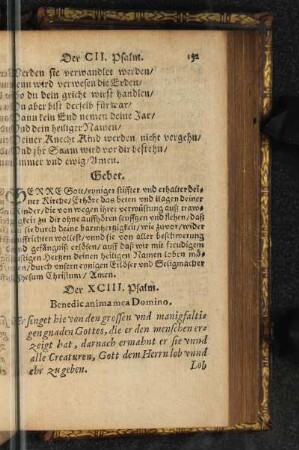 Der CII. Psalm. 192
Werden sie verwandlet werden/
wenn wird verwesen die Erden/
wo du dein gricht wirst handlen/
Du aber bist derselb fürwar/
Dann kein End nemen deine Jar/
Und dein heiliger Namen/
Deiner Knecht Kind werden nicht vergehn/
Und jhr Saam wird vor dir bestehn/
immer vnd ewig/Amen.
Gebet.
HERRE Gott/ewiger stiffter vnd erhalter dei-
ner Kirche/Erhöre das beten vnd klagen deiner
Kinder/die von wegen jhrer verwüstung auß traw-
rigkeit zu dir ohne auffhören seufftzen vnd flehen/daß
sie durch deine barmhertzigkeit/wie zuvor/wider
auffrichten wollest/vnnd sie von aller beschwerung
vnd gefängnüß erlösen/auff daß wir mit freudigem
Hertzen deinen heiligen Namen loben mö-
gen/durch vnsern eynigen Erlöser vnd Seligmacher
Jhesum Christum/Amen.
Der XCIII. Psalm.
Benedic anima mea Domino.
Er singet hie von den grossen vnd manigfalti-
gen gnaden Gottes, die er den menschen er-
zeigt hat, darnach ermahnt er sie vnnd
alle Creaturen, Gott dem Herrn lob vnnd
ehr zu geben.
Lob